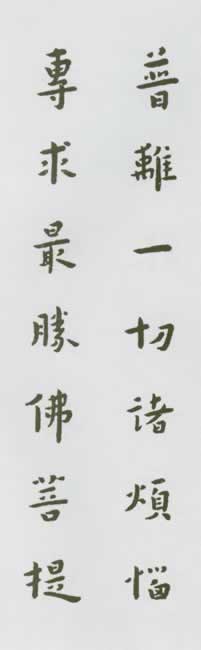 普離一切諸煩惱
專求最勝佛菩提